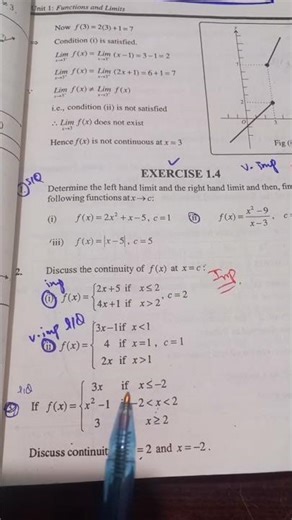 Unit 1: Functions and Limits
Now f(3)=2(3)+1=7
Condition (i) is satisfied.
Lim f(x) = Lim (x−1)=3−1=2
Lim f(x) = Lim (2x+1)=6+1=7
Lim f(x) ≠ Lim f(x)
i.e., condition (ii) is not satisfied
∴ Lim f(x) does not exist
Hence f(x) is not continuous at x = 3
Fig (
EXERCISE 1.4
v. Imp
S/Q
Determine the left hand limit and the right hand limit and then, fin
following functions at x→c:
(i) f(x)=2x²+x−5, c=1 (ii) f(x)=x²−9/x−3, c
(iii) f(x)=|x−5|, c=5
2. Discuss the continuity of f(x) at x=c:
Imp
imp
(i) f(x)={2x+5 if x≤2
4x+1 if x>2, c=2
v.imp
(ii) f(x)={3x−1 if x<1
4 if x=1, c=1
2x if x>1
If f(x)={3x if x≤−2
x²−1 −2<x<2
3 x≥2
Discuss continuit =2 and x=−2.